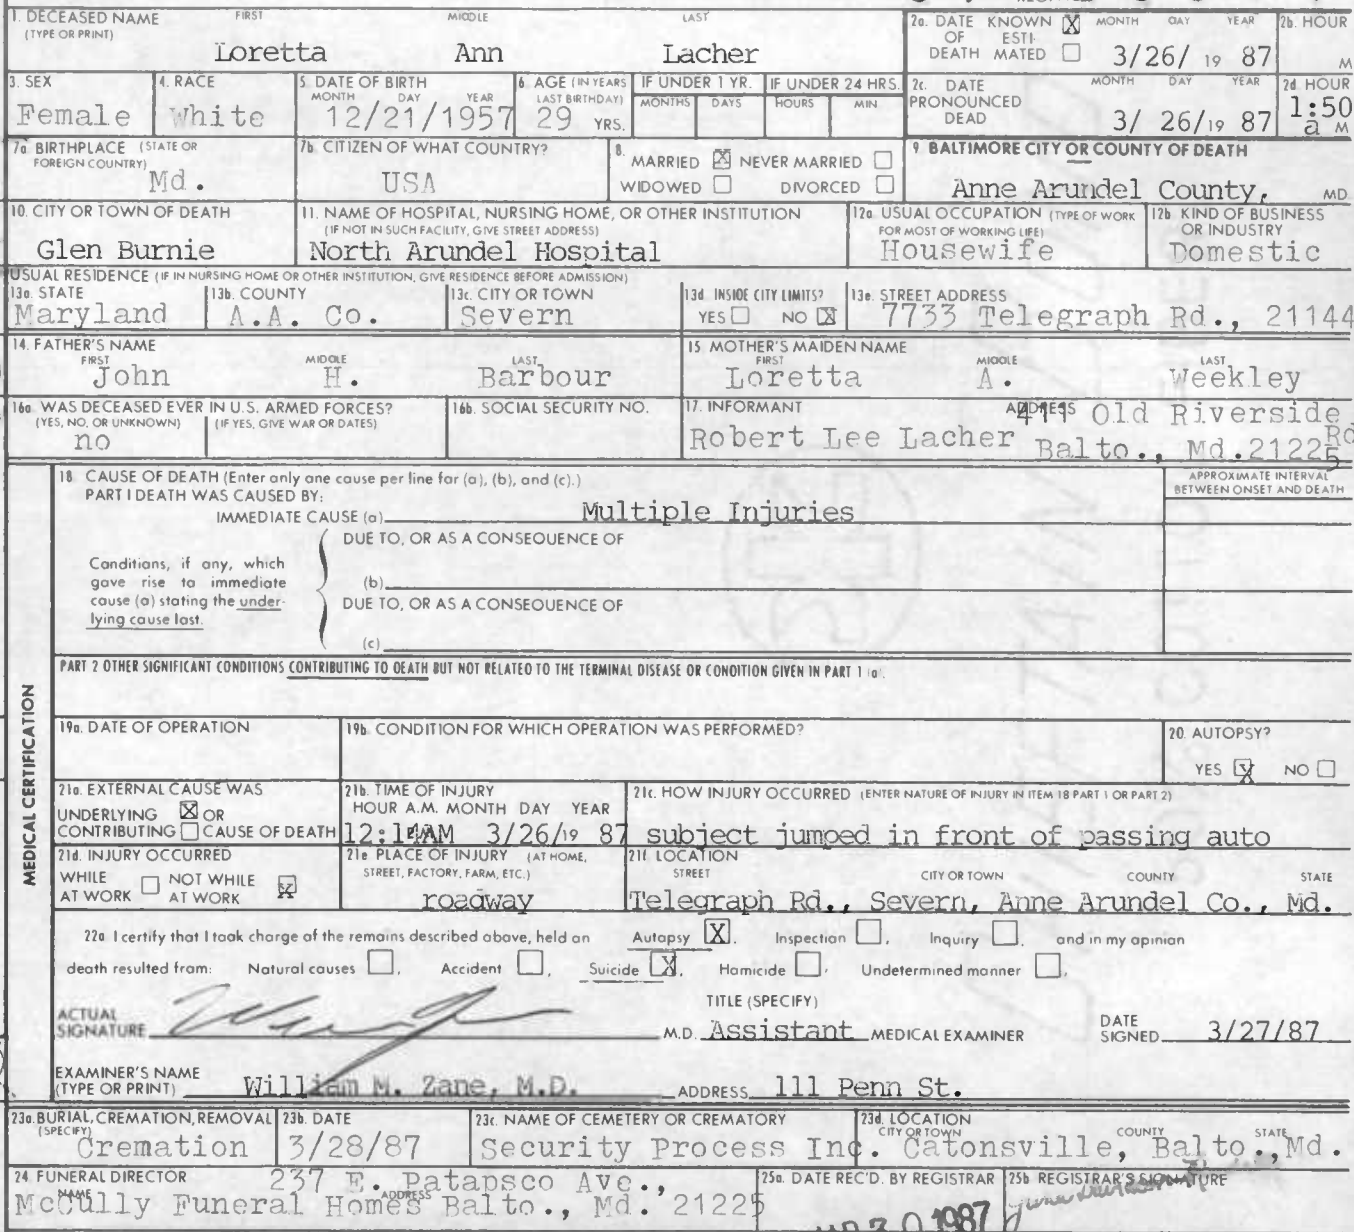 1. DECEASED NAME (TYPE OR PRINT) FIRST MIDDLE LAST
Loretta Ann Lacher
2a. DATE OF DEATH KNOWN X ESTIMATED MONTH DAY YEAR 3/26/ 19 87
2b. HOUR M
3. SEX Female
4. RACE White
5. DATE OF BIRTH MONTH DAY YEAR 12/21/1957
6. AGE (IN YEARS LAST BIRTHDAY) 29 YRS.
IF UNDER 1 YR. MONTHS DAYS
IF UNDER 24 HRS. HOURS MIN
2c. DATE PRONOUNCED DEAD MONTH DAY YEAR 3/ 26/19 87
2d HOUR 1:50 a M
7a BIRTHPLACE (STATE OR FOREIGN COUNTRY) Md.
7b. CITIZEN OF WHAT COUNTRY? USA
8. MARRIED X NEVER MARRIED WIDOWED DIVORCED
9. BALTIMORE CITY OR COUNTY OF DEATH Anne Arundel County, MD
10. CITY OR TOWN OF DEATH Glen Burnie
11. NAME OF HOSPITAL, NURSING HOME, OR OTHER INSTITUTION (IF NOT IN SUCH FACILITY, GIVE STREET ADDRESS) North Arundel Hospital
12a USUAL OCCUPATION (TYPE OF WORK FOR MOST OF WORKING LIFE) Housewife
12b KIND OF BUSINESS OR INDUSTRY Domestic
USUAL RESIDENCE (IF IN NURSING HOME OR OTHER INSTITUTION, GIVE RESIDENCE BEFORE ADMISSION)
13a. STATE Maryland
13b. COUNTY A.A. Co.
13c. CITY OR TOWN Severn
13d INSIDE CITY LIMITS? YES NO X
13e. STREET ADDRESS 7733 Telegraph Rd., 21144
14. FATHER'S NAME FIRST MIDDLE LAST
John H. Barbour
15 MOTHER'S MAIDEN NAME FIRST MIDDLE LAST
Loretta A. Weekley
16a WAS DECEASED EVER IN U.S. ARMED FORCES? (YES, NO, OR UNKNOWN) (IF YES, GIVE WAR OR DATES) no
16b. SOCIAL SECURITY NO.
17. INFORMANT Robert Lee Lacher
ADDRESS 411 Old Riverside Rd
Balto., Md.21225
MEDICAL CERTIFICATION
18 CAUSE OF DEATH (Enter only one cause per line for (a), (b), and (c).)
APPROXIMATE INTERVAL BETWEEN ONSET AND DEATH
PART I DEATH WAS CAUSED BY:
IMMEDIATE CAUSE (a) Multiple Injuries
DUE TO, OR AS A CONSEQUENCE OF
Conditions, if any, which gave rise to immediate cause (a) stating the underlying cause last.
(b)
DUE TO, OR AS A CONSEQUENCE OF
(c)
PART 2 OTHER SIGNIFICANT CONDITIONS CONTRIBUTING TO DEATH BUT NOT RELATED TO THE TERMINAL DISEASE OR CONDITION GIVEN IN PART 1 (a).
19a. DATE OF OPERATION
19b. CONDITION FOR WHICH OPERATION WAS PERFORMED?
20. AUTOPSY? YES X NO
21a. EXTERNAL CAUSE WAS UNDERLYING X OR CONTRIBUTING CAUSE OF DEATH
21b. TIME OF INJURY HOUR A.M. MONTH DAY YEAR 12:14AM 3/26/19 87
21c. HOW INJURY OCCURRED (ENTER NATURE OF INJURY IN ITEM 18 PART 1 OR PART 2)
subject jumped in front of passing auto
21d. INJURY OCCURRED WHILE AT WORK NOT WHILE AT WORK X
21e PLACE OF INJURY (AT HOME, STREET, FACTORY, FARM, ETC.) roadway
21f. LOCATION STREET CITY OR TOWN COUNTY STATE
Telegraph Rd., Severn, Anne Arundel Co., Md.
22a I certify that I took charge of the remains described above, held an Autopsy X, Inspection , Inquiry , and in my opinion
death resulted from: Natural causes , Accident , Suicide X, Homicide , Undetermined manner .
ACTUAL SIGNATURE M.D. TITLE (SPECIFY) Assistant MEDICAL EXAMINER DATE SIGNED 3/27/87
EXAMINER'S NAME (TYPE OR PRINT) William M. Zane, M.D. ADDRESS 111 Penn St.
23a. BURIAL, CREMATION, REMOVAL (SPECIFY) Cremation
23b. DATE 3/28/87
23c. NAME OF CEMETERY OR CREMATORY Security Process Inc.
23d. LOCATION CITY OR TOWN COUNTY STATE Catonsville, Balto., Md.
24. FUNERAL DIRECTOR NAME ADDRESS
237 E. Patapsco Ave.,
McCully Funeral Homes Balto., Md. 21225
25a. DATE REC'D. BY REGISTRAR 30 1987
25b. REGISTRAR'S SIGNATURE